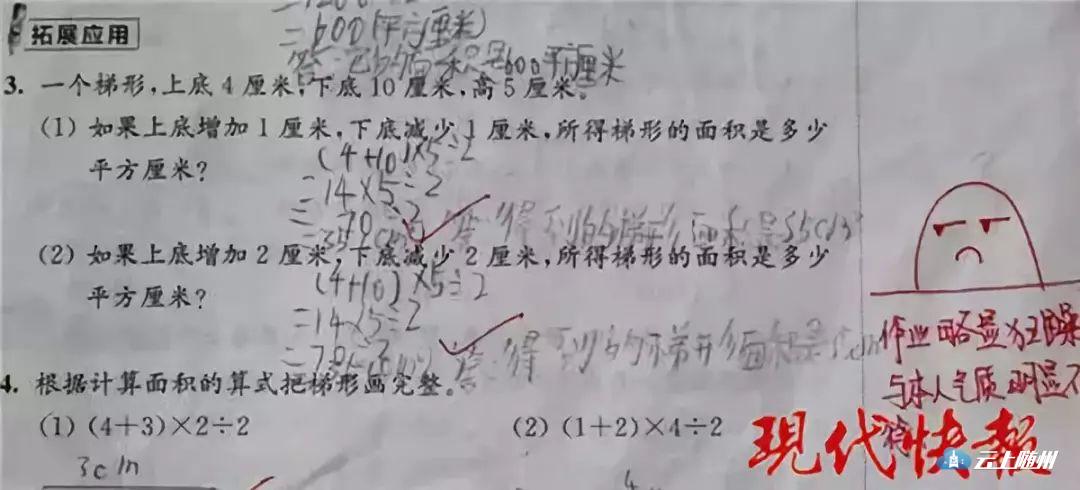 =600(平方厘米)
拓展应用
答:它的面积是600平方厘米
3. 一个梯形,上底 4 厘米,下底 10 厘米,高 5 厘米。
(1) 如果上底增加 1 厘米,下底减少 1 厘米,所得梯形的面积是多少
(4+10)×5÷2
平方厘米?
=14×5÷2
=70÷2
答:得到的梯形面积是35cm²
(2) 如果上底增加 2 厘米,下底减少 2 厘米,所得梯形的面积是多少
(4+10)×5÷2
平方厘米?
=14×5÷2
=70÷2
答:得到的梯形面积是
作业略显狂躁
与本人气质明显不
符
4. 根据计算面积的算式把梯形画完整。
(1) (4+3)×2÷2
(2) (1+2)×4÷2
现代快報
云上随州
3cm
4